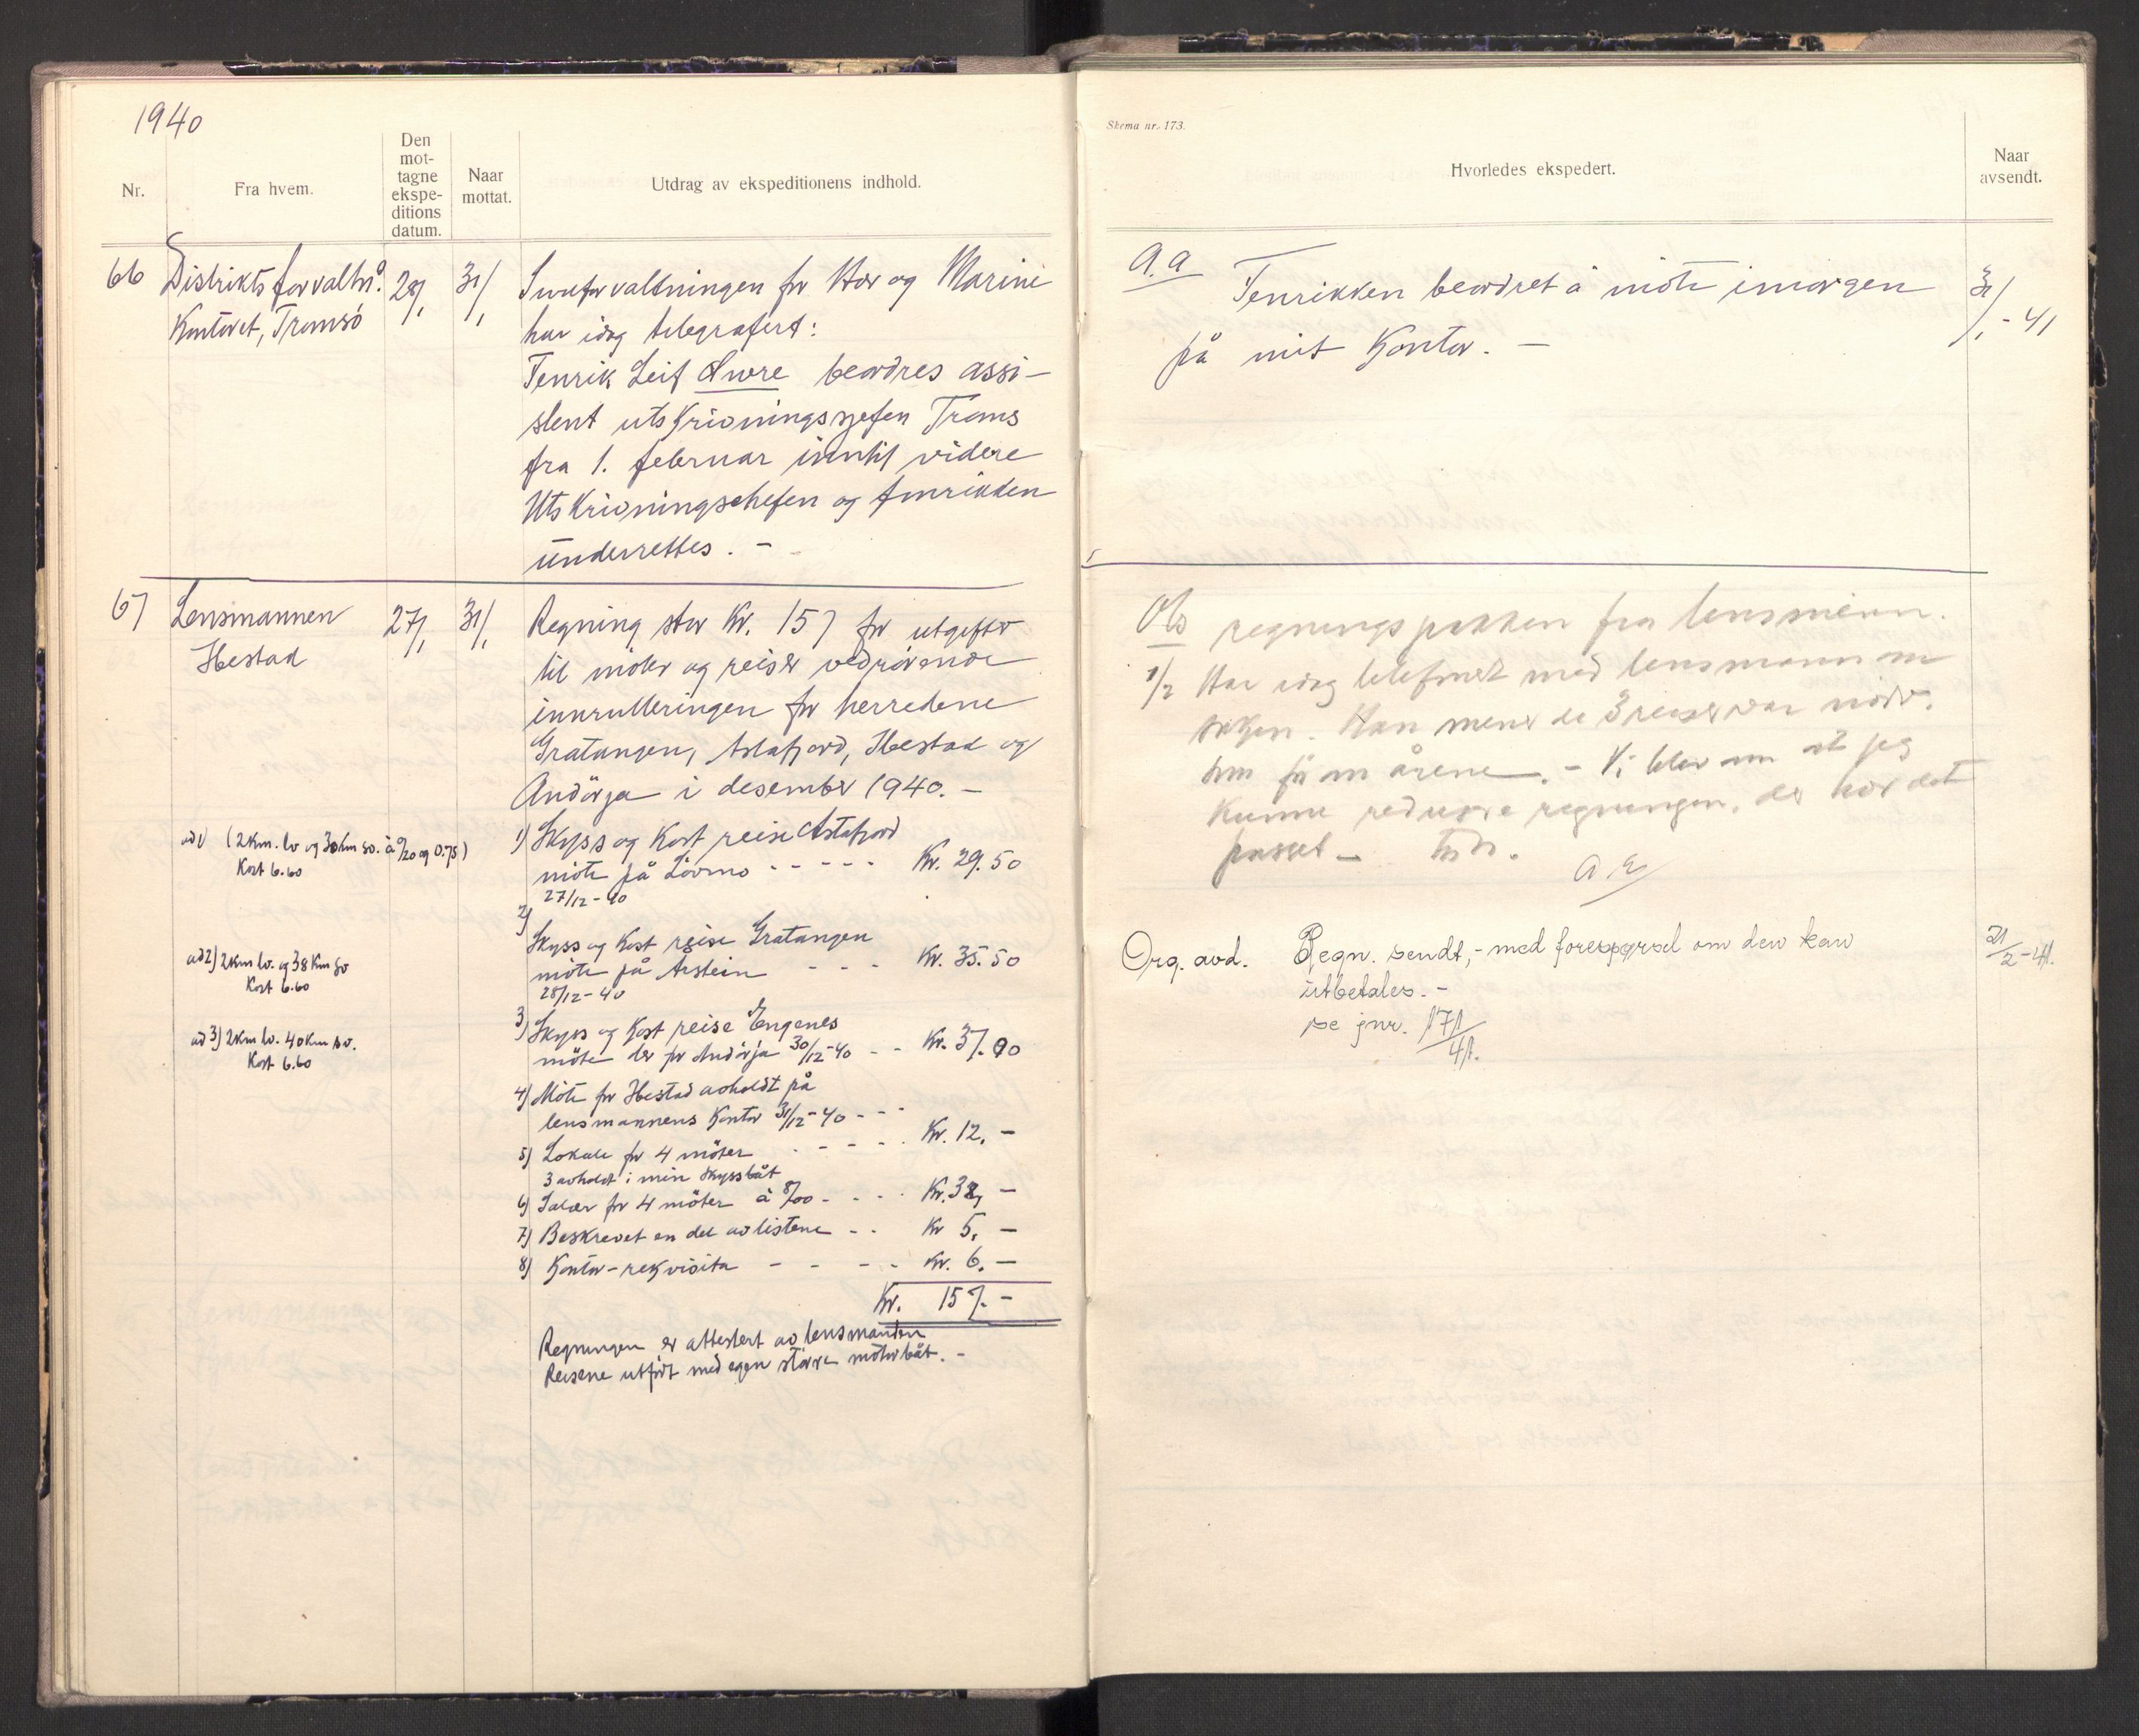 1940
Nr.
Fra hvem.
Den
mot-
tagne
ekspe-
ditions
datum.
Naar
mottat.
Utdrag av ekspeditionens indhold.
66
Distriktsforvaltn.
Kontoret, Tromsö
29/1
31/1
for Hær og Marine
har idag telegrafert:
Fenrik Leif beordres assi-
stent utskrivningssjefen Troms
fra 1. februar inntil videre
Utskrivningschefen og fenrikken
underrettes. -
67
Lensmannen
Ibestad
27/1
31/1
Regning stor Kr. 157 for utgifter
til möter og reiser vedrörende
innrulleringen for herredene
Gratangen, Astafjord, Ibestad og
Andörja i desember 1940. -
ad1 (2 km. lv og 30 km so. à 0/20 og 0.75)
Kost 6.60
1) Skyss og Kost reise Astafjord
möte på Lövmo - - - - - Kr. 29.50
27/12-40
ad2) 2 km lv. og 38 Km so
Kost 6.60
2)
Skyss og Kost reise Gratangen
möte på Årstein - - - Kr. 35.50
28/12-40
ad3) 2 km lv. 40 km so.
Kost 6.60
3) Skyss og Kost reise Engenes
möte der for Andörja 30/12-40 - - Kr. 37.00
4) Möte for Ibestad avholdt på
lensmannens Kontor 31/12-40 - - -
5) Lokale for 4 möter - - - - Kr. 12. -
3 avholdt i min skyssbåt
6) Salær for 4 möter à 8/00 - - - - Kr. 32, -
7) Beskrevet en del av listene - - Kr 5. -
8) Kontor-rekvisita - - - - Kr. 6. -
Kr. 157. -
Regningen er attestert av lensmannen
Reisene utfört med egen större motorbåt. -
Skema nr. 173.
Hvorledes ekspedert.
Naar
avsendt.
a.a
Fenrikken beordret å möte imorgen
på mit Kontor. -
31/1-41
Obs regningspakken fra lensmenn.
1/2 Har idag telefonert med lensmann om
saken. Han mener de 3 reiser var nödv.
som för om årene. - Vi blev om at jeg
kunne redusere regningen, der hvor det
passet -
Org. avd. Regn. sendt, - med forespørsel om den kan
utbetales. -
se jnr. 171/41.
21/2-41.